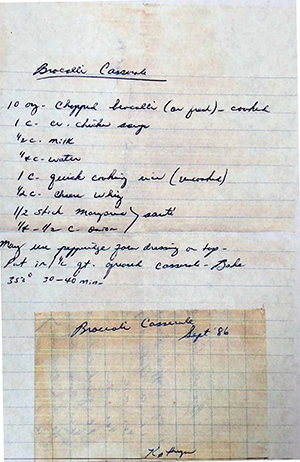 Brocolli Casserole
10 oz - Chopped brocolli (or fresh) - cooked
1 c - cr. chicken soup
1/2 c - milk
1/4 c - water
1 c - quick cooking rice (uncooked)
1/2 c - cheese whiz
1/2 stick margarine } sauté
1/4 - 1/2 c onion
May use pepperidge farm dressing on top -
Put in 1 1/2 qt. greased casserole - Bake
350° 30-40 min -
Broccoli Casserole
Sept '86